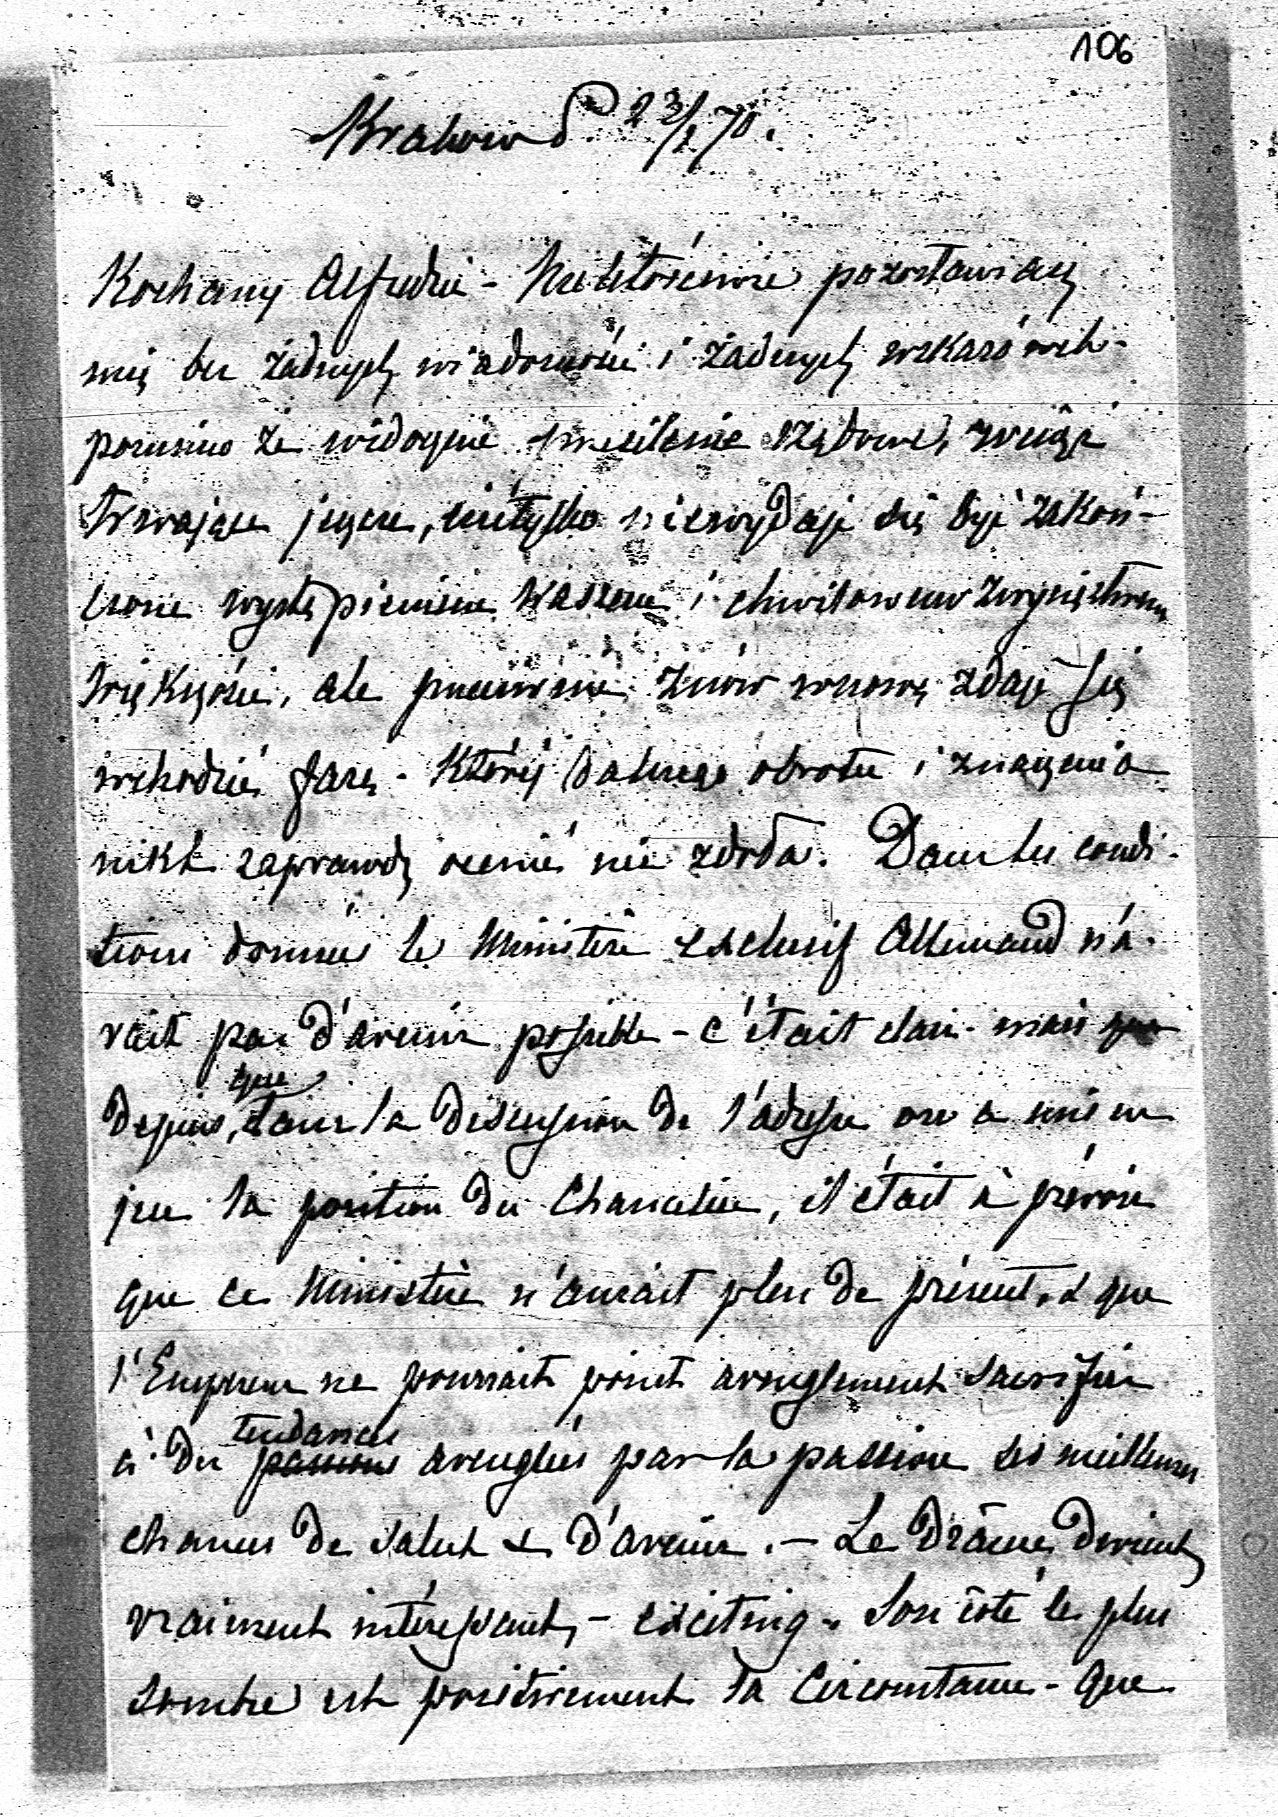 106
Krakow d 23/1 70.
Kochany Alfredzie - Nielitościwie pozostawiasz
mię bez żadnych wiadomości i żadnych wskazówek -
pomimo że widocznie przesilenie rządowe, wciąż
trwające jeszcze, nietylko niewydaje się być zakoń-
czone wystąpieniem Waszem i chwilowem zwycięstwem
większości, ale przeciwnie znów w nową zdaje się
wchodzić fazę - której dalszego obrotu i znaczenia
nikt zaprawdę ocenić nie zdoła. Dans les condi-
tions données le Ministère exclusif Allemand n'a-
vait pas d'avenir possible - c'était clair - mais
depuis, que dans la discussion de l'adresse on a mis en
jeu la position du Chancelier, il était à prévoir
que ce Ministère n'aurait plus de présent, & que
l'Empereur ne pourrait point aveuglement sacrifier
à des tendances aveuglées par la passion les meilleures
chances de salut & d'avenir. - Le drâme devient
vraiment intéressant, - exciting. Son côté le plus
sombre est positivement la circonstance - que